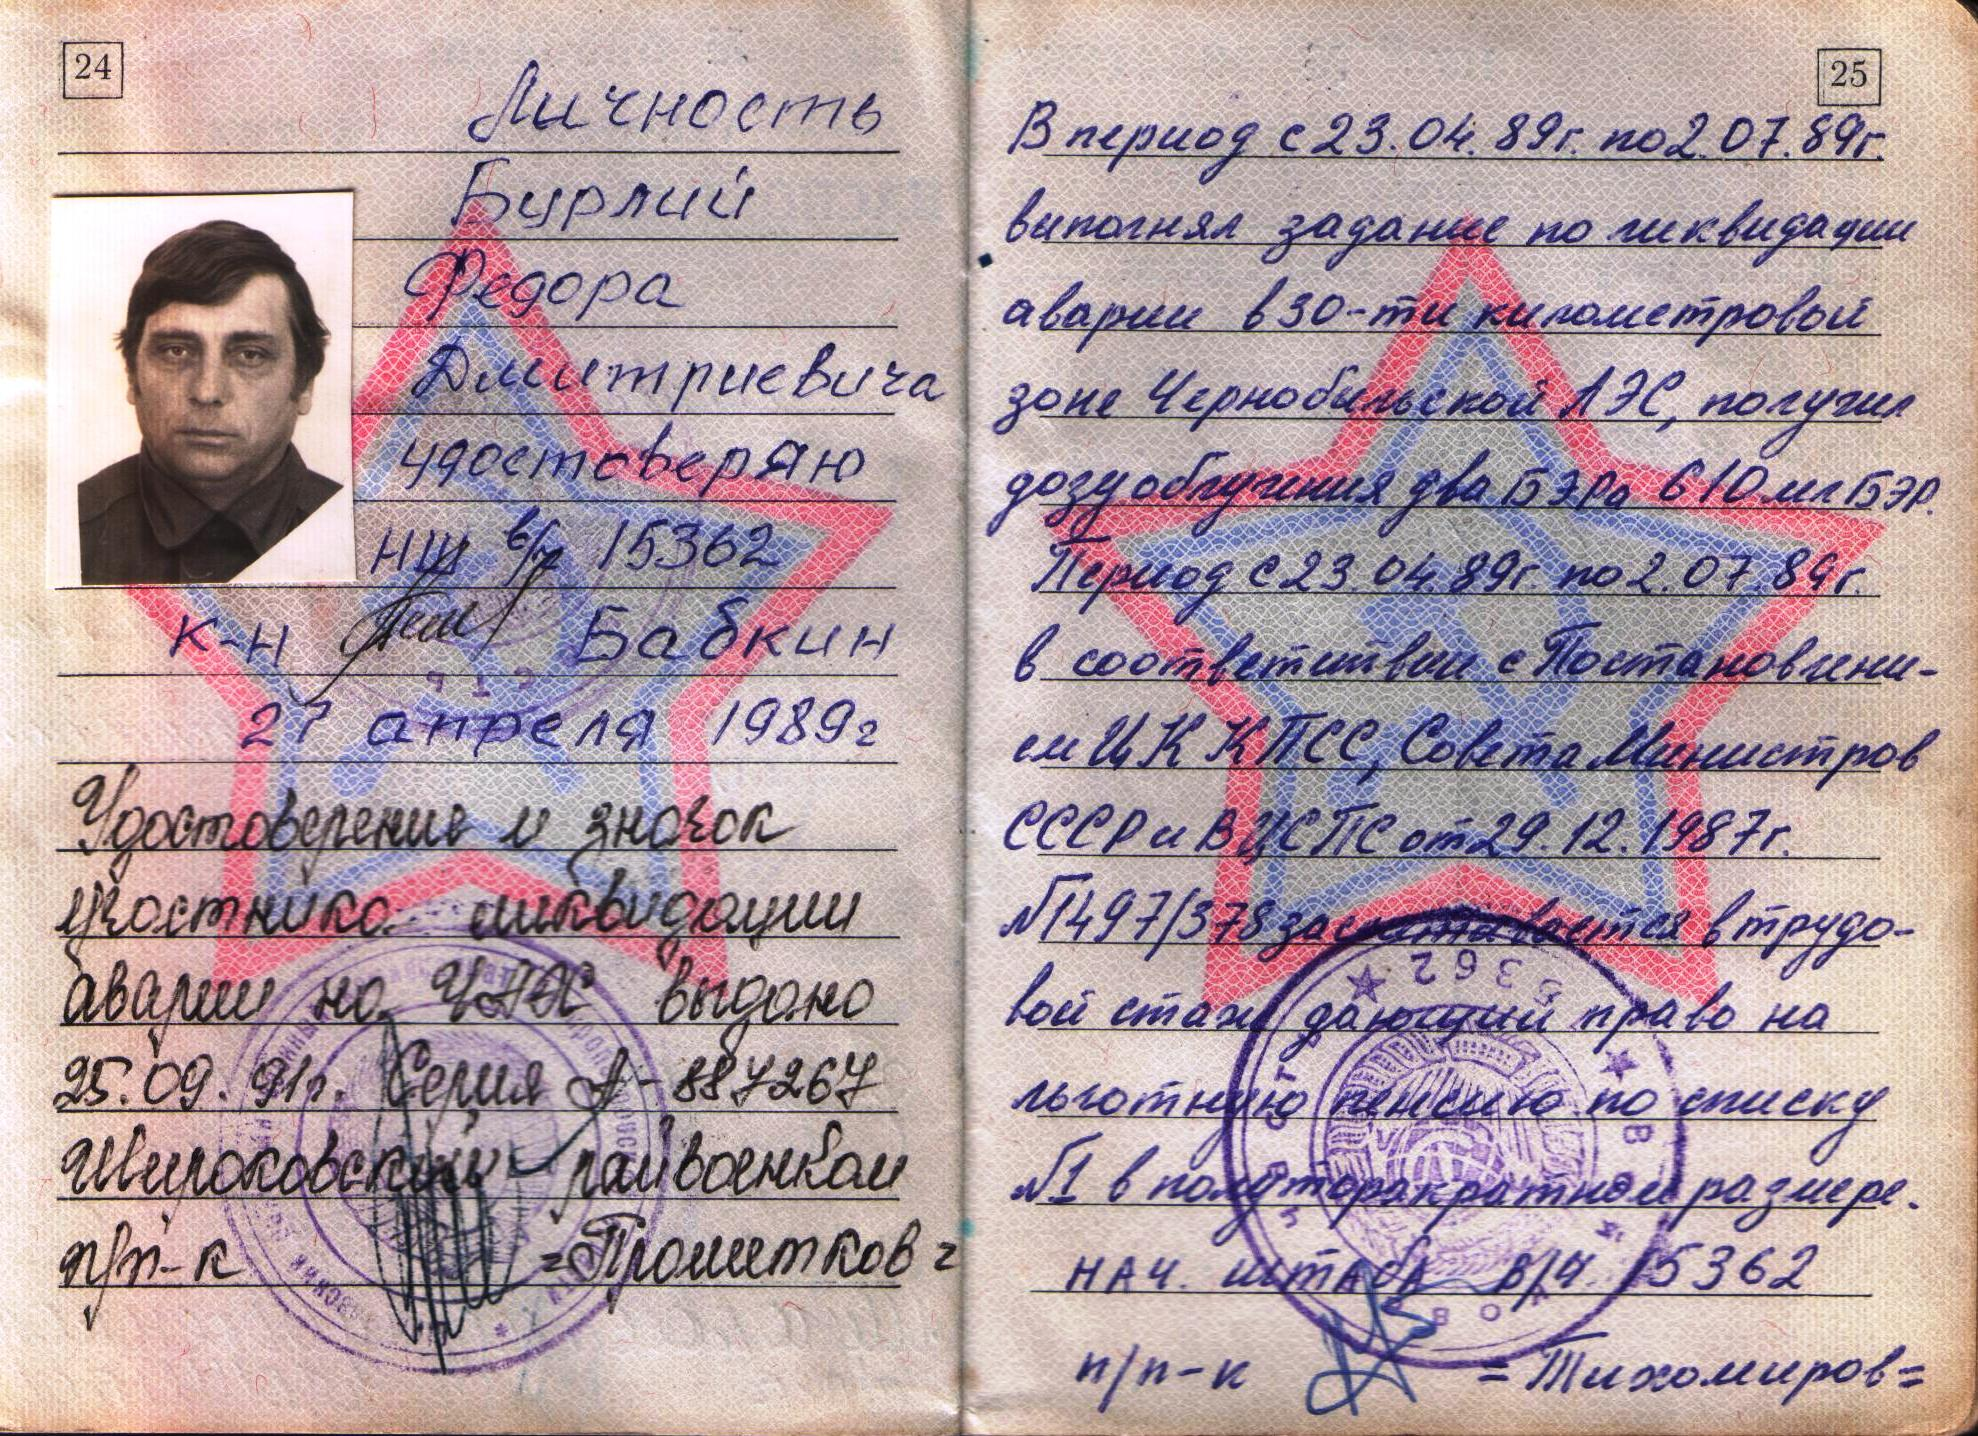 24
Личность
Бурлий
Федора
Дмитриевича
удостоверяю
НШ в/ч 15362
к-н Бабкин
27 апреля 1989г
Удостоверение и значок
участника ликвидации
аварии на ЧАЭС выдано
25.09.91г. Серия А-887267
Широковский райвоенком
п/п-к =Прометков=
25
В период с 23.04.89г. по 2.07.89г.
выполнял задание по ликвидации
аварии в 30-ти километровой
зоне Чернобыльской АЭС, получил
дозу облучения два БЭРа 610 мл БЭР.
Период с 23.04.89г по 2.07.89г.
в соответствии с Постановлени-
ем ЦК КПСС, Совета Министров
СССР и ВЦСПС от 29.12.1987г.
№1497/378 засчитывается в трудо-
вой стаж дающий право на
льготную пенсию по списку
№1 в полуторакратном размере.
нач. штаба в/ч. 15362
п/п-к =Тихомиров=